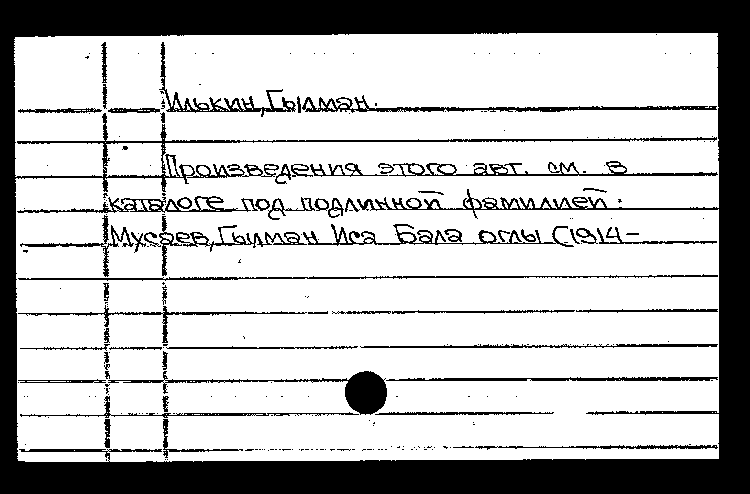 Илькин, Гылман.
Произведения этого авт. см. в
каталоге под подлинной фамилией:
Мусаев, Гылман Иса Бала оглы (1914-